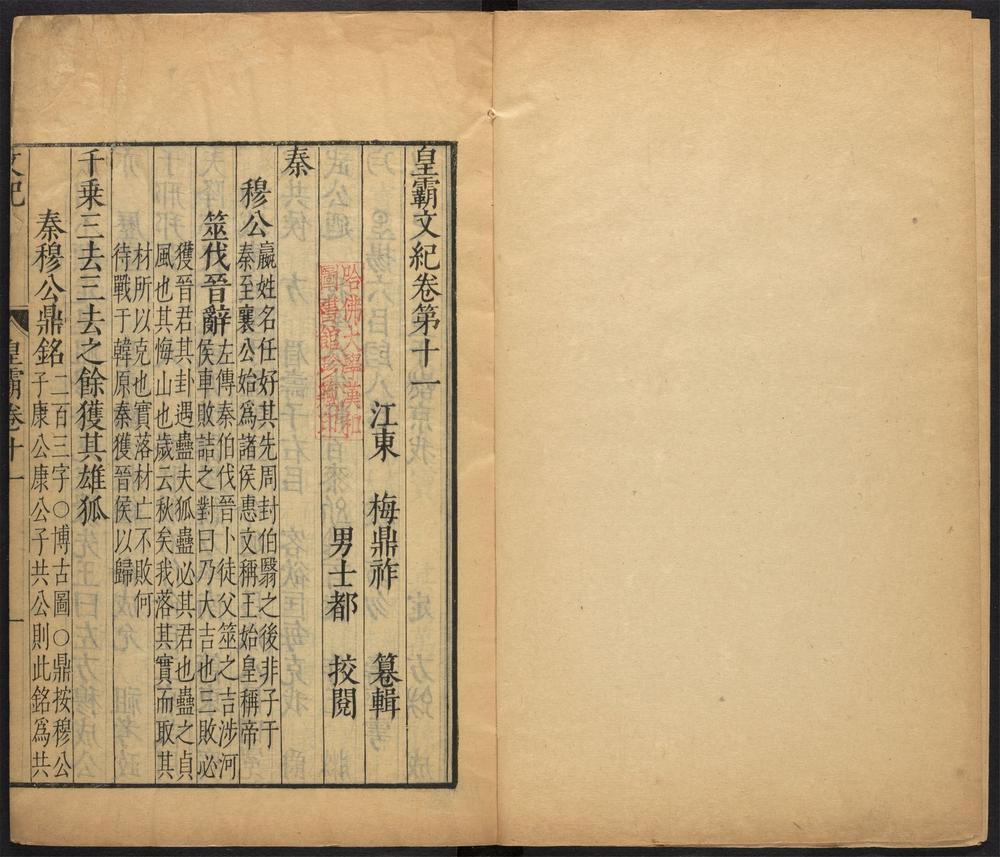 皇霸文紀卷第十一
江東　梅鼎祚　纂輯
男士都　挍閱
秦
穆公嬴姓名任好其先周封伯翳之後非子于
秦至襄公始爲諸侯惠文稱王始皇稱帝
筮伐晉辭左傳秦伯伐晉卜徒父筮之吉涉河
侯車敗詰之對曰乃大吉也三敗必
獲晉君其卦遇蠱夫狐蠱必其君也蠱之貞
風也其悔山也歲云秋矣我落其實而取其
材所以克也實落材亡不敗何
待戰于韓原秦獲晉侯以歸
千乗三去三去之餘獲其雄狐
秦穆公鼎銘二百三字○博古圖○鼎按穆公
子康公康公子共公則此銘爲共
文紀　皇霸卷十一　一
哈佛大學漢和
圖書館珍藏印